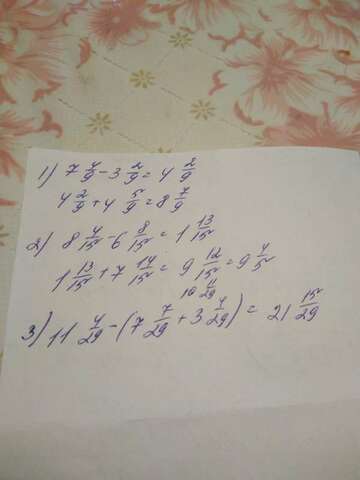 1) 7 4/9 - 3 2/9 = 4 2/9
4 2/9 + 4 5/9 = 8 7/9
2) 8 4/15 - 6 8/15 = 1 13/15
1 13/15 + 7 14/15 = 9 12/15 = 9 4/5
10 11/29
3) 11 4/29 - (7 7/29 + 3 4/29) = 21 15/29